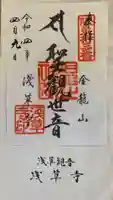 奉拝
金龍山
聖観世音
浅草寺
令和四年
四月九日
浅草観音
浅草寺